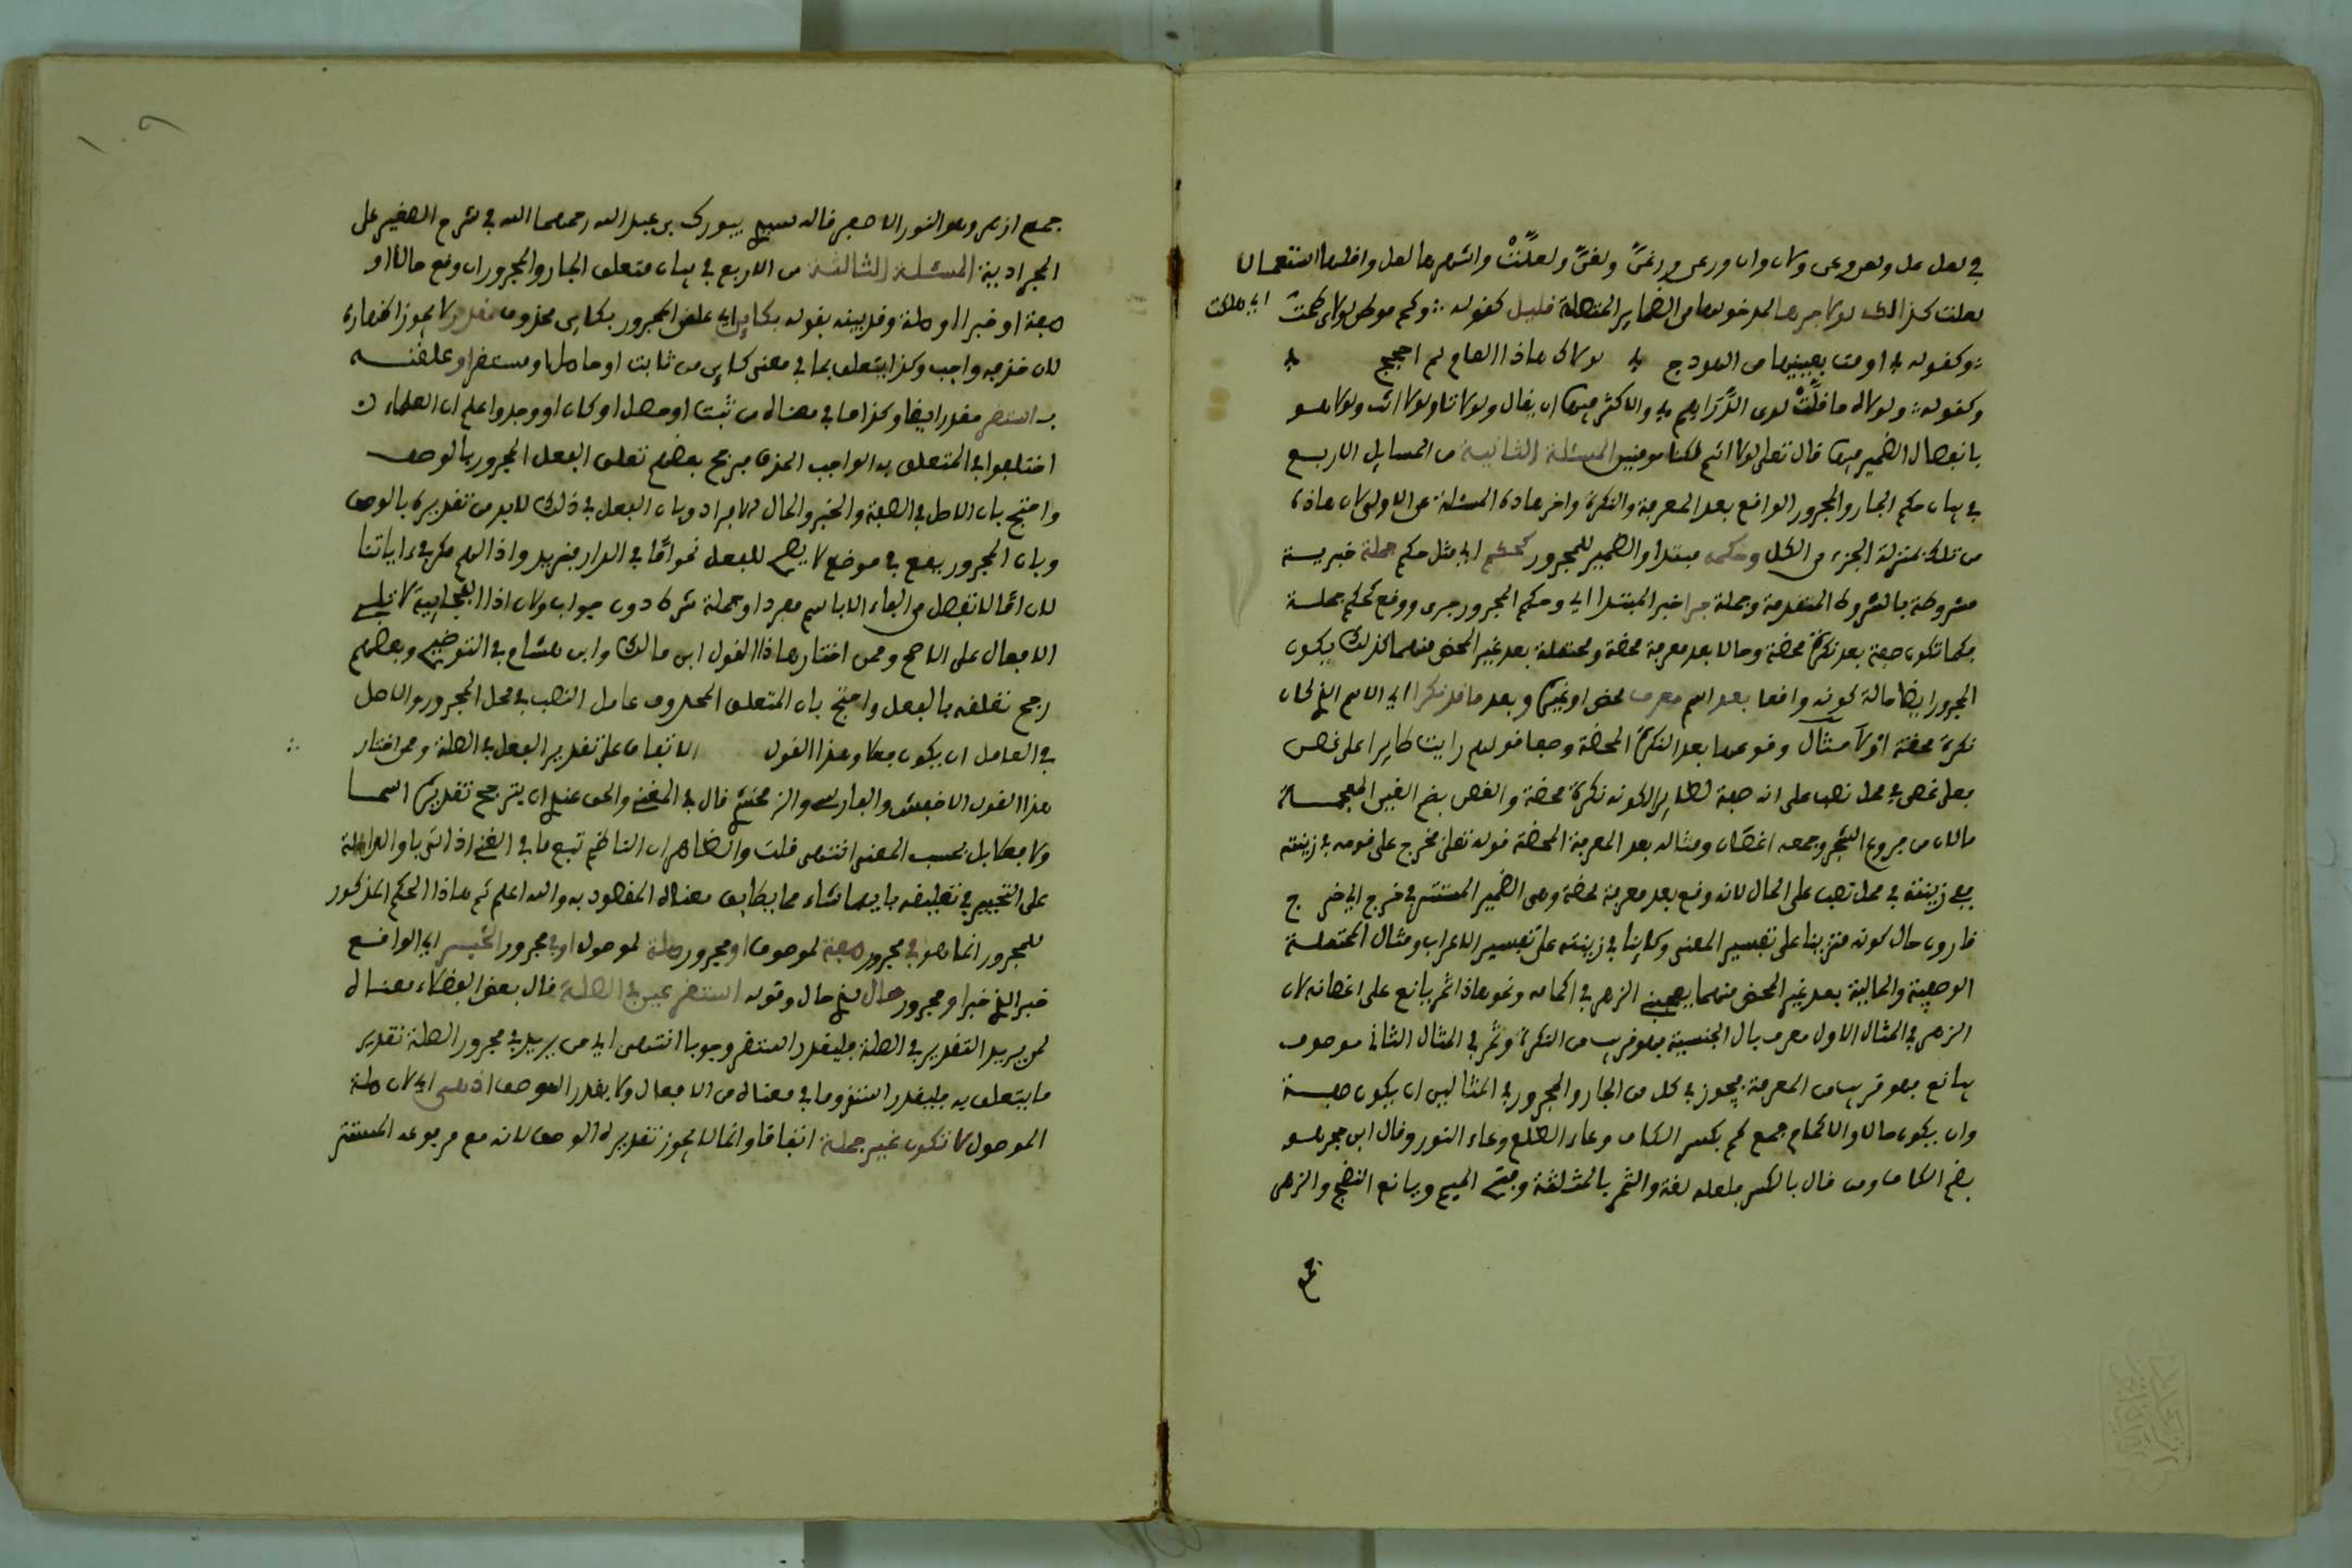 في لعل عل ولعن وعن ولان وان ورعن ورغنّ ولغنّ ولعلّتْ واشهرها لعل واقلها استعمالا
لعلت كذالك لولا جرها لمدخولها من الضماير المتصلة قليل كقوله وكم موطن لولاي طحت اي هلكت
وكقوله اومت بعينيها من الهودج لولاك هاذا العام لم احجج
وكقوله ولولاه ما قلّتْ لدى الدراهم والاكثر فيها ان يقال ولولا انا ولولا انت ولولا هو
بانفصال الضمير فيها قال تعلى لولا انتم لكنا مومنين المسئلة الثانية من المسايل الاربع
في بيان حكم الجار والمجرور الواقع بعد المعرفة والنكرة واخر هاذه المسئلة عن الاولى لان هاذه
من تلك بمنزلة الجزء من الكل وحكمه مبتدا والضمير للمجرور كحكم اي مثل حكم جملة خبرية
مشروطة بالشروط المتقدمة وجملة جرا خبر المبتدا اي وحكم المجرور جرى ووقع كحكم جملة
فكما تكون صفة بعد نكرة محضة وحالا بعد معرفة محضة ومحتملة بعد غير المحض منهما كذلك يكون
المجرور ايضا حالة كونه واقعا بعد اسم معرف محض او غيره وبعد ما قد نكرا اي الاسم الذي كان
نكرة محضة اولا مثال وقوعها بعد النكرة المحضة وصفا قولهم رايت طايرا على غصن
فعلى غصن في محل نصب على انه صفة لطايرا لكونه نكرة محضة والغصن بضم الغين المعجمة
مالان من فروع الشجر وجمعه اغصان ومثاله بعد المعرفة المحضة قوله تعلى فخرج على قومه في زينته
ففي زينته في محل نصب على الحال لانه وقع بعد معرفة محضة وهي الضمير المستتر في خرج اي خرج
قارون حال كونه متزينا على تفسير المعنى وكاينا في زينته على تفسير الاعراب ومثال المحتملة
الوصفية والحالية بعد غير المحض منهما يعجبني الزهر في اكمامه ونحو هاذا ثمر يانع على اغصانه لان
الزهر في المثال الاول معرف بال الجنسية فهو قريب من النكرة وثمر في المثال الثاني موصوف
بيانع فهو قريب من المعرفة فيجوز في كل من الجار والمجرور في المثالين ان يكون صفة
وان يكون حالا والاكمام جمع كم بكسر الكاف وعاء الطلع وعاء النور وقال ابن حجر هو
بضم الكاف ومن قال بالكسر فلعله لغة والثمر بالمثلثة وفتح الميم ويانع النضج والزهر
جمع ازهر وهو النور الاصفر قاله سيدي يبورك بن عبد الله رحمهما الله في شرح الصغير على
الجرادية المسئلة الثالثة من الاربع في بيان متعلق الجار والمجرور ان وقع حالا او
صفة او خبرا او صلة وقد بينه بقوله بكاين اي علق المجرور بكاين محذوف مقدر لا يجوز اظهاره
لان حذفه واجب وكذا يتعلق بما في معنى كاين من ثابت او حاصل او مستقر او علقنه
بـ استقر مقدرا ايضا وكذا ما في معناه من ثبت او حصل او كان او وجد واعلم ان العلماء
اختلفوا في المتعلق به الواجب الحذف فرجح بعضهم تعلق الفعل المجرور بالوصف
واحتج بان الاصل في الصفة والخبر والحال الافراد وبان الفعل في ذلك لابد من تقديره بالوصف
وبان المجرور يقع في موضع لا يصح للفعل نحو امّا في الدار فزيد واذا لهم مكر في ءاياتنا
لان امّا لا تفصل من الفاء الا باسم مفرد او جملة شرط دون جواب ولان اذا الفجاءية لا تليه
الافعال على الاصح وممن اختار هاذا القول ابن مالك وابن هشام في التوضيح وبعضهم
رجح تعلقه بالفعل واحتج بان المتعلق المحذوف عامل النصب في محل المجرور والاصل
في العامل ان يكون فعلا وهذا القول الاتفاق على تقدير الفعل في الصلة وممن اختار
هذا القول الاخفش والفارسي والزمخشري قال في المغني والحق عندي ان يترجح تقديره اسما
ولا فعلا بل بحسب المعنى انتهى قلت والظاهر ان الناظم تبع ما في المغني اذ اتى باو الدالة
على التخيير في تعليقه بايهما شاء مما يطابق معناه المقصود به والله اعلم ثم هاذا الحكم المذكور
للمجرور انما هو في مجرور صفة لموصوف او مجرور صلة لموصول او في مجرور الخبر اي الواقع
خبر الذي خبر او مجرور حال لذي حال وقوله استقر عين في الصلة قال بعض الفضلاء معناه
لمن يريد التقدير في الصلة فليقدر استقر وجوبا انتهى اي من يريد في مجرور الصلة تقدير
ما يتعلق به فليقدر استقر وما في معناه من الافعال ولا يقدر الوصف اذ هي اي لان صلة
الموصول لا تكون غير جملة اتفاقا وانما لا يجوز تقديره الوصف لانه مع مرفوعه المستتر